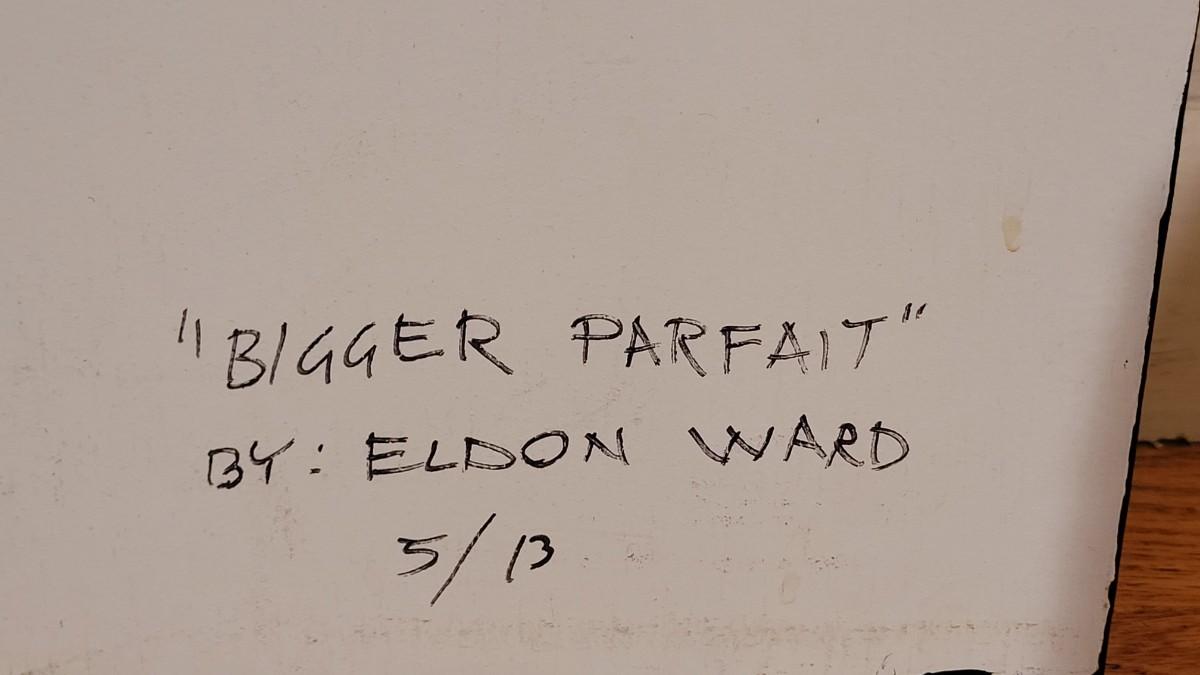 "BIGGER PARFAIT"
BY: ELDON WARD
5/13